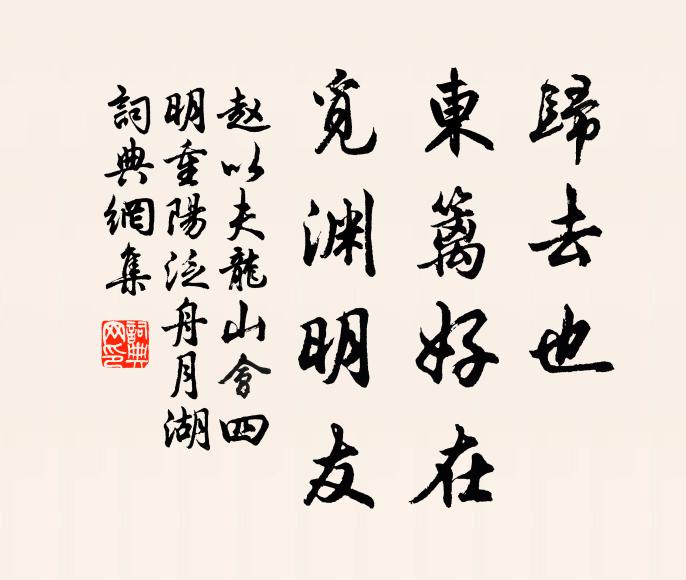 歸去也
東籬好在
覓渊明友
赵以夫龍山會四
明重陽泛舟月湖
詞典網集
詞典
网印